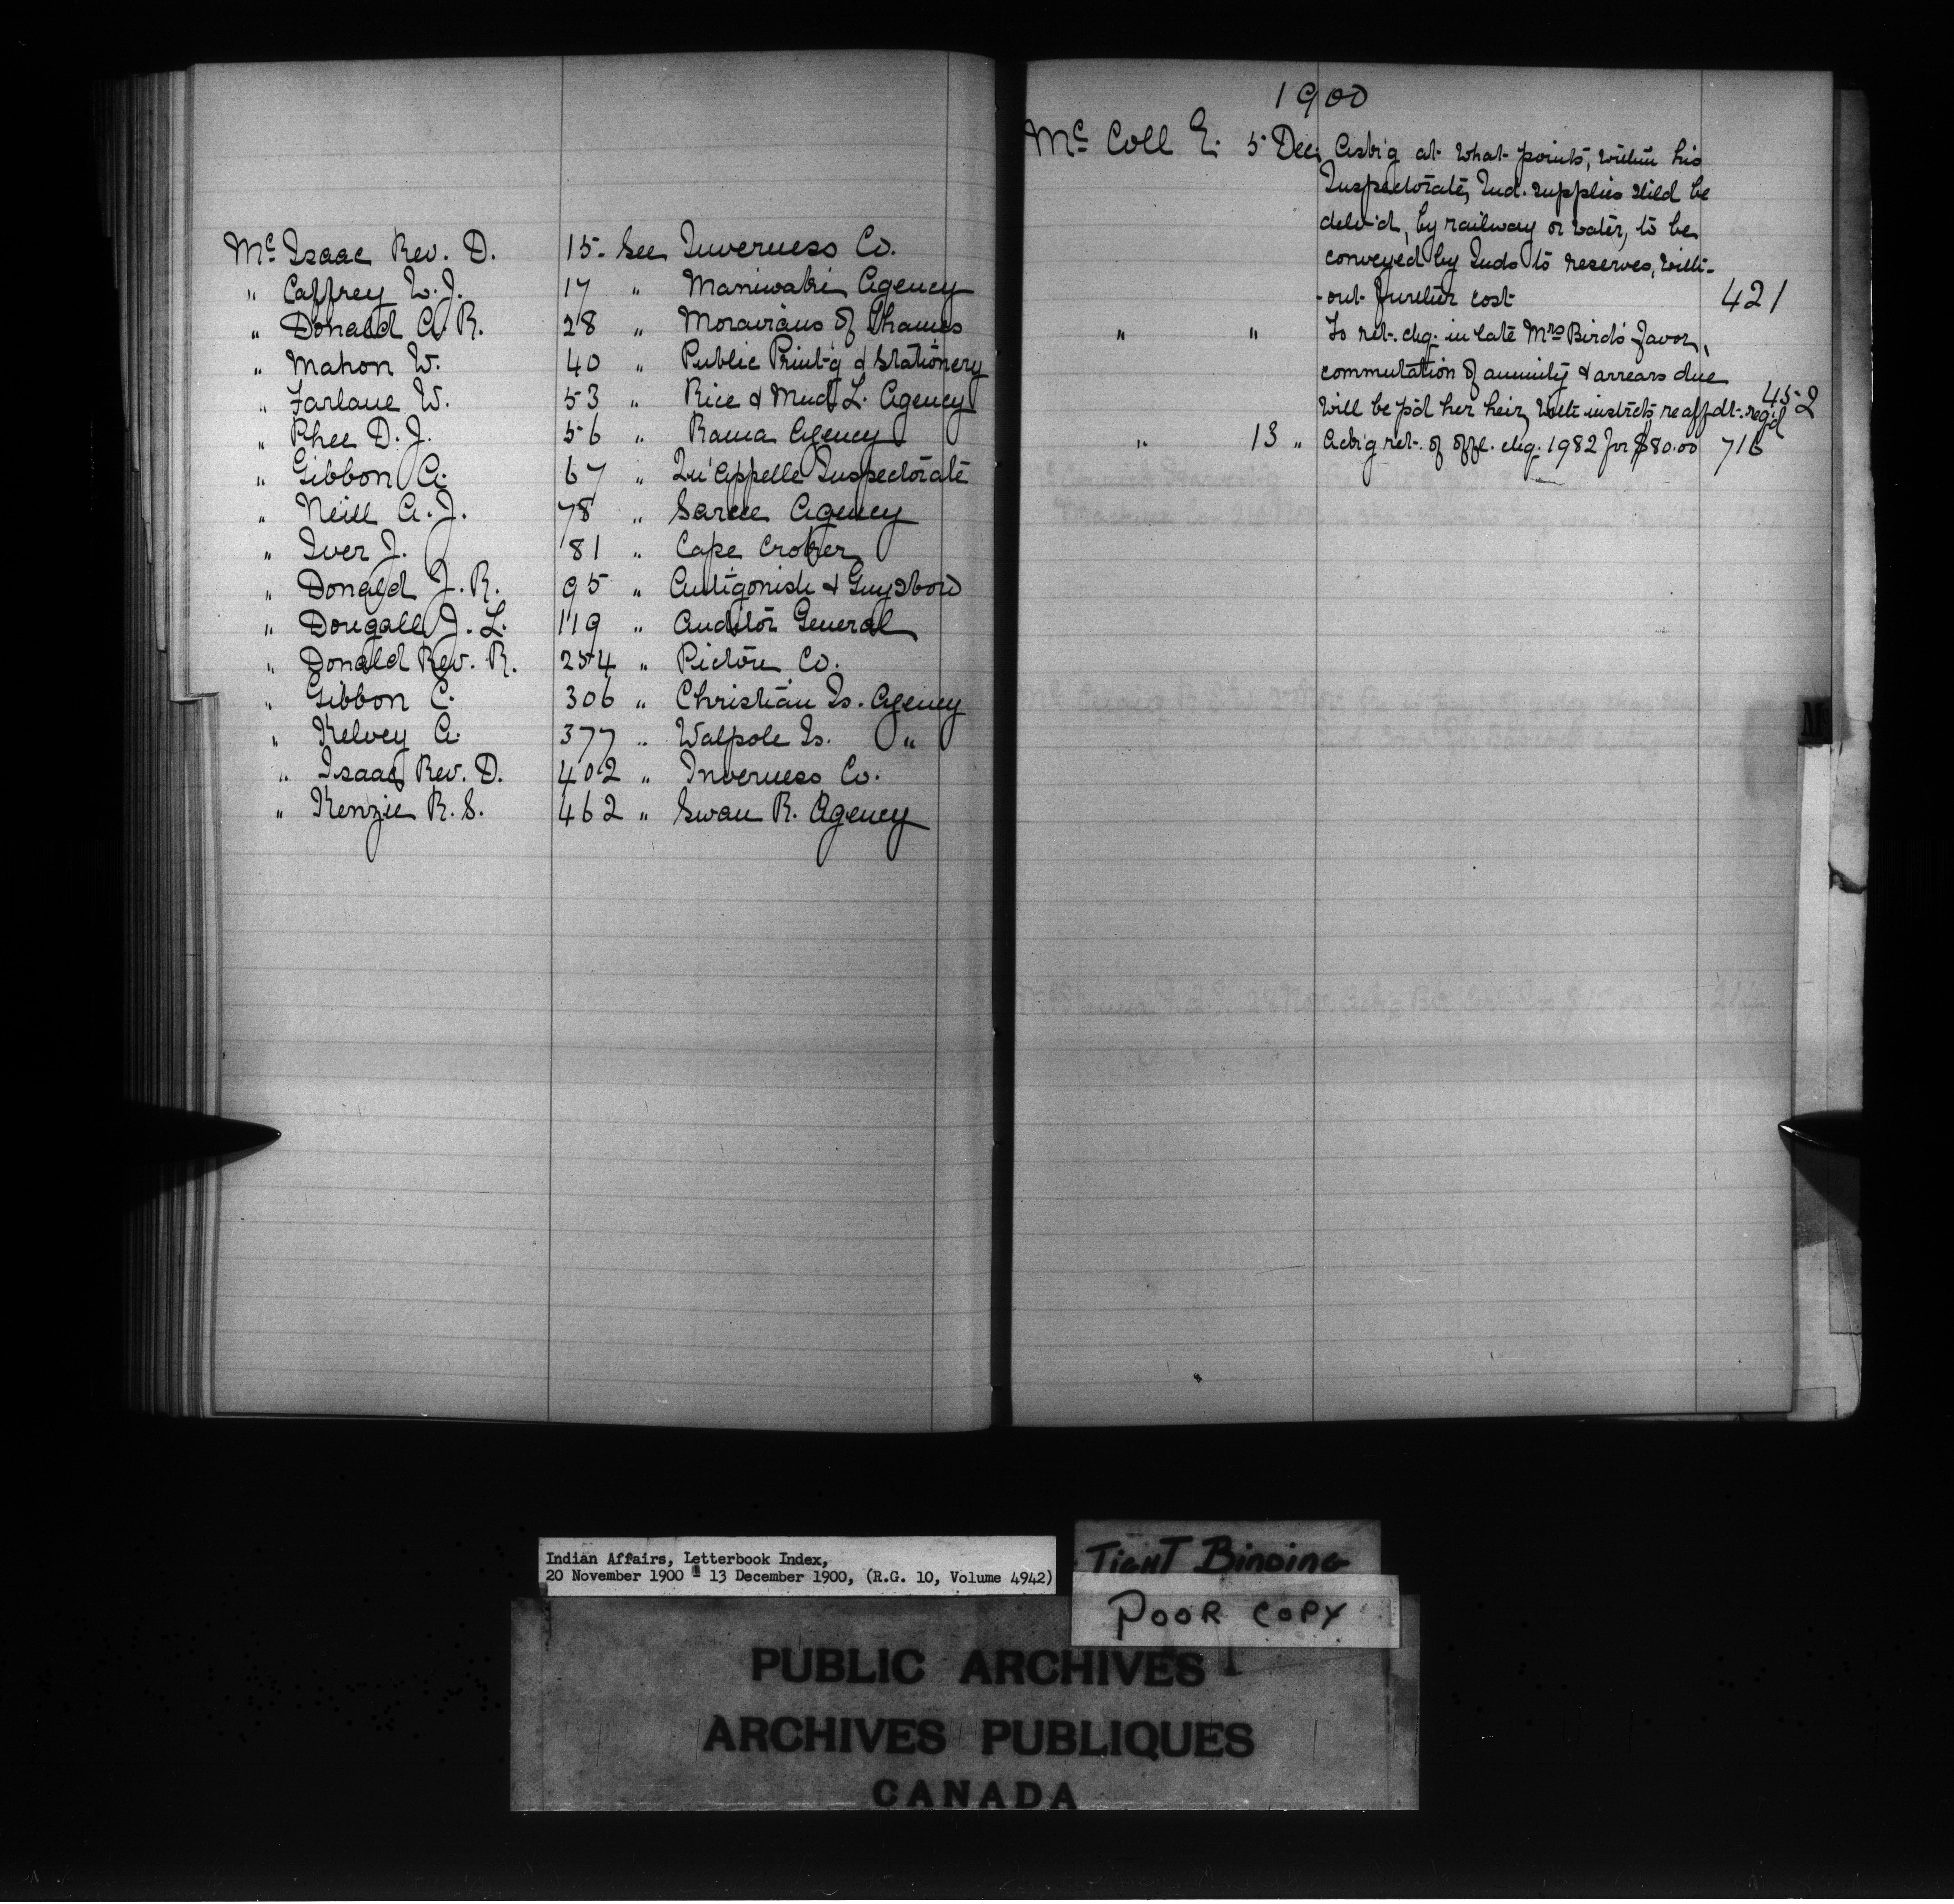 Mc Isaac Rev. D. 15. See Inverness Co.
" Caffrey W.J. 17 " Maniwaki Agency
" Donald A.R. 28 " Moravians of Thames
" Mahon W. 40 " Public Print'g & Stationery
" Farlane W. 53 " Rice & Mud L. Agency
" Phee D.J. 56 " Rama Agency
" Gibbon A. 67 " Qu'Appelle Inspectorate
" Neill A.J. 78 " Sarcee Agency
" Iver J. 81 " Cape Croker
" Donald J.R. 95 " Antigonish & Guysboro
" Dougall J.L. 119 " Auditor General
" Donald Rev. R. 254 " Pictou Co.
" Gibbon C. 306 " Christian Is. Agency
" Kelvey A. 377 " Walpole Is. "
" Isaac Rev. D. 402 " Inverness Co.
" Kenzie R.S. 462 " Swan R. Agency
1900
Mc Coll E. 5 Dec. Ask'g at what points, within his
Inspectorate, Ind. supplies shld be
deliv'd, by railway or water, to be
conveyed by Inds to reserves, with-
-out further cost 421
" " To ret. chq. in late Mrs Bird's favor,
commutation of annuity & arrears due
will be p'd her heir, with instrcts re affdt. reqd 452
" 13 " Ackg ret. of offl. chq. 1982 for $80.00 716
Mc
Indian Affairs, Letterbook Index,
20 November 1900 - 13 December 1900, (R.G. 10, Volume 4942)
TIGHT BINDING
POOR COPY
PUBLIC ARCHIVES
ARCHIVES PUBLIQUES
CANADA